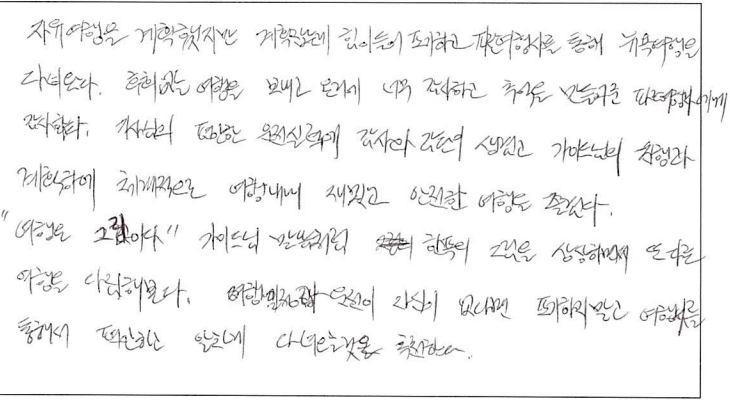 자유여행을 계획했지만 계획짜는데 힘이들어 포기하고 파란여행사를 통해 뉴욕여행을
다녀온다. 후회없는 여행을 보내고 온거에 너무 감사하고 추억을 만들어준 파란여행사에게
감사한다. 기사님의 편안한 운전실력에 감사와 감탄이 생겼고 가이드님의 진행과
계획하에 체계적으로 여행내내 재밌고 안전한 여행을 즐겼다.
"여행은 그림이다" 가이드님 말씀처럼 한폭의 그림을 상상하면서 또다른
여행을 다짐해본다. 운전이 자신이 없다면 포기하지말고 여행사를
통해서 편안하고 알차게 다녀오는것을 추천한다.